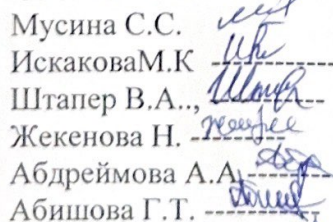 Мусина С.С.
ИскаковаМ.К ---------
Штапер В.А.., ---------
Жекенова Н. ---------
Абдреймова А.А ---------
Абишова Г.Т. ---------